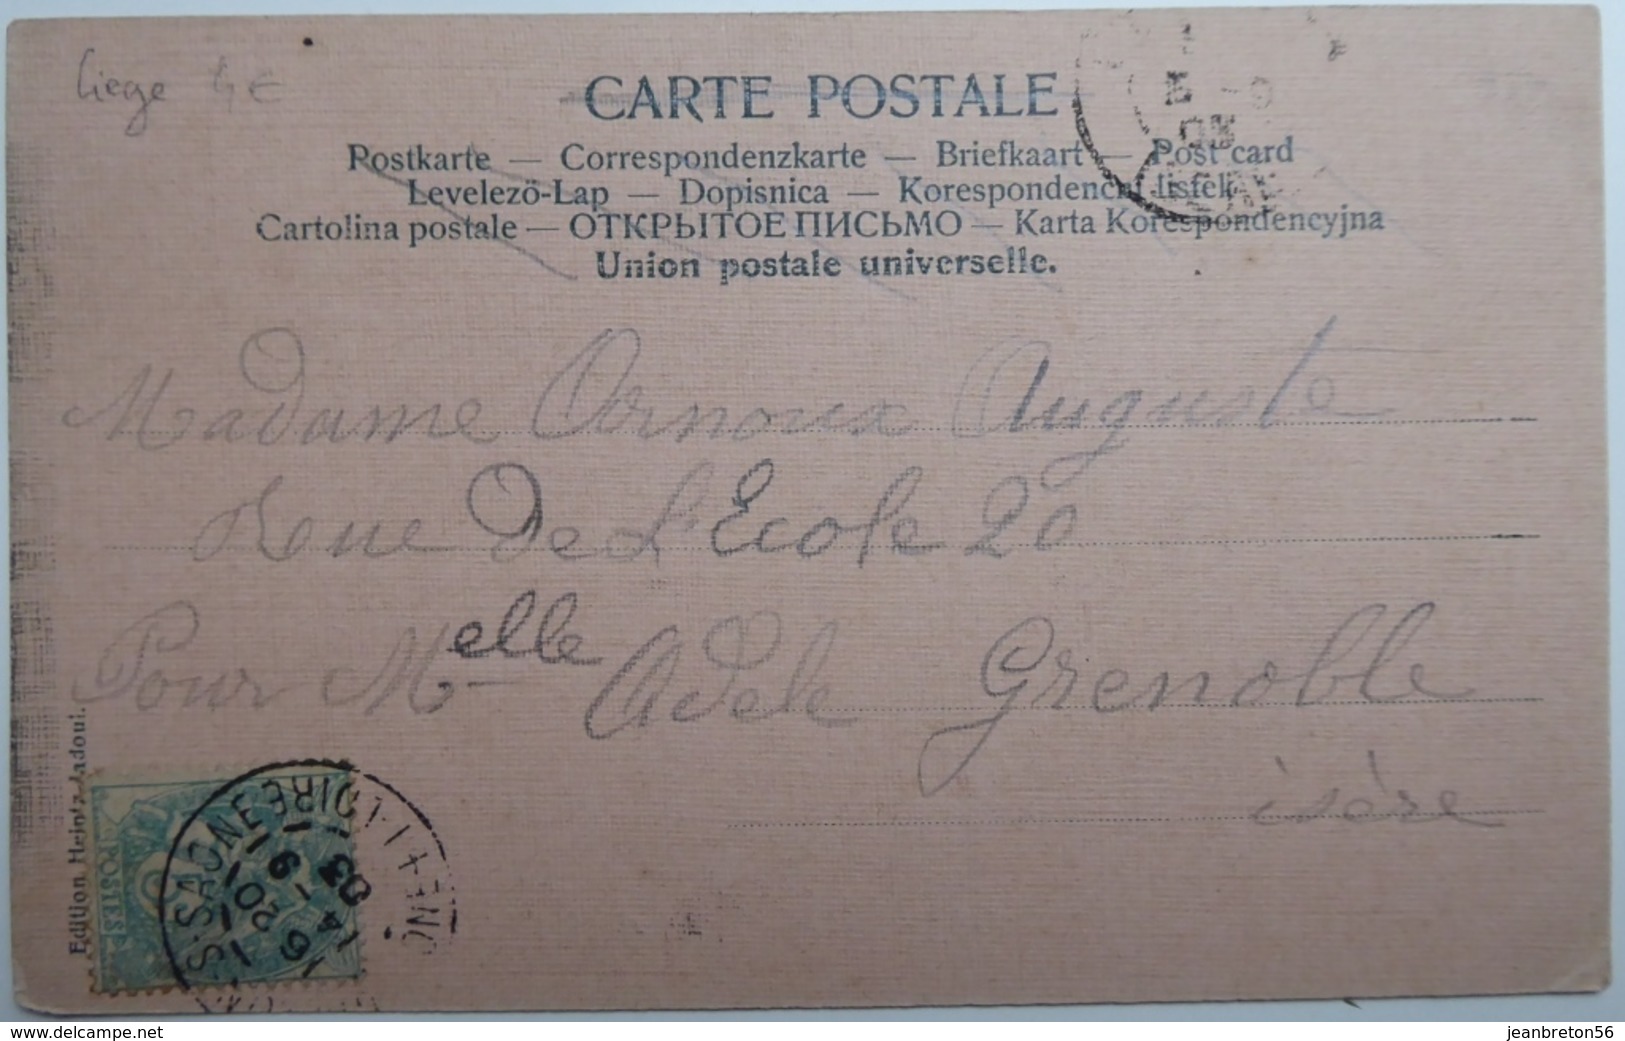 Liege 4€
CARTE POSTALE
Postkarte — Correspondenzkarte — Briefkaart — Post card
Levelezö-Lap — Dopisnica — Korespondenční listek
Cartolina postale — ОТКРЫТОЕ ПИСЬМО — Karta Korespondencyjna
Union postale universelle.
Madame Arnoux Auguste
Rue De l'Ecole 20
Pour Melle Adele Grenoble
isère
Edition Heintz-Jadoul.
POSTES
LOIRE
03
delcampe.net
jeanbreton56